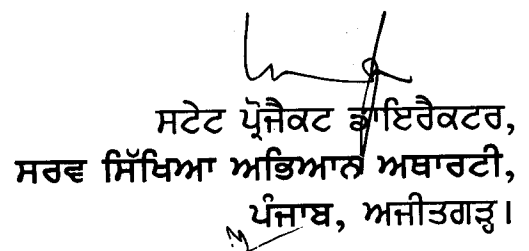 ਸਟੇਟ ਪ੍ਰੋਜੈਕਟ ਡਾਇਰੈਕਟਰ,
ਸਰਵ ਸਿੱਖਿਆ ਅਭਿਆਨ ਅਥਾਰਟੀ,
ਪੰਜਾਬ, ਅਜੀਤਗੜ੍ਹ।